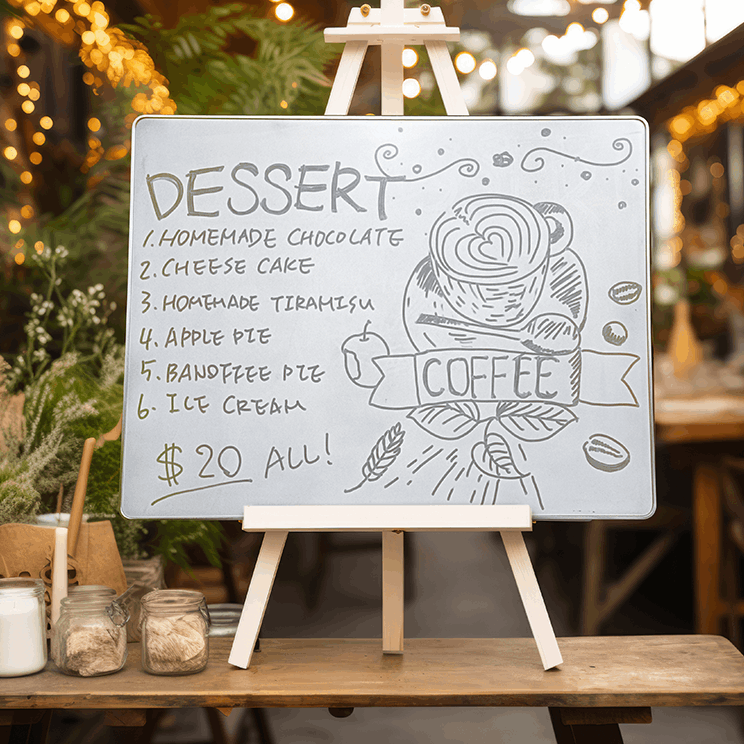 DESSERT
1. HOMEMADE CHOCOLATE
2. CHEESE CAKE
3. HOMEMADE TIRAMISU
4. APPLE PIE
5. BANOFFEE PIE
6. ICE CREAM
$20 ALL!
COFFEE